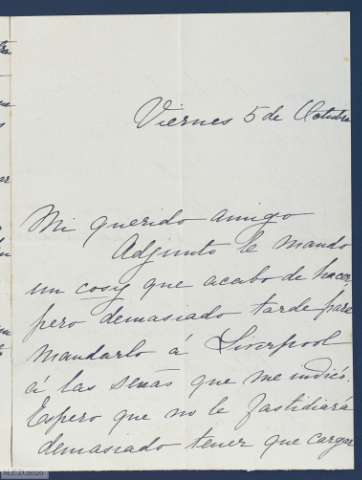 Viernes 5 de Octubre
Mi querido amigo
Adjunto le mando
un cosy que acabo de hacer
pero demasiado tarde para
mandarlo á Liverpool
á las señas que me indicó.
Espero que no le fastidiará
demasiado tener que cargar